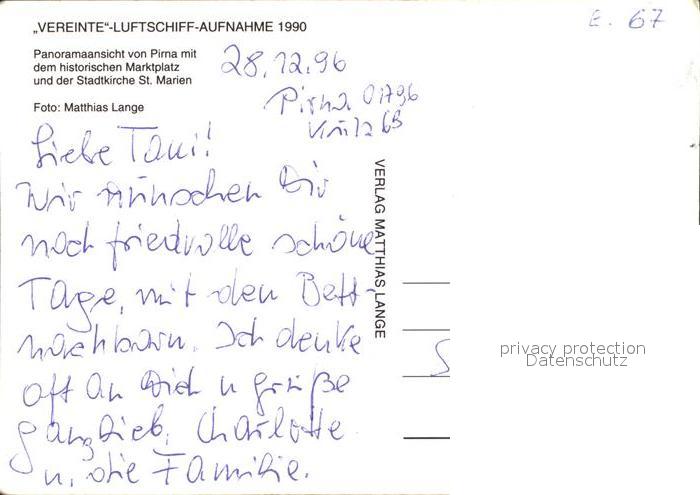 „VEREINTE“-LUFTSCHIFF-AUFNAHME 1990
E. 67
Panoramaansicht von Pirna mit
dem historischen Marktplatz
und der Stadtkirche St. Marien
Foto: Matthias Lange
28.12.96
Pirna 01796
Liebe Tani!
Wir wünschen Dir
noch friedvolle schöne
Tage, mit den Bett-
nachbarn. Ich denke
oft an Dich u grüße
ganz lieb, Charlotte
u. die Familie.
VERLAG MATTHIAS LANGE
privacy protection
Datenschutz